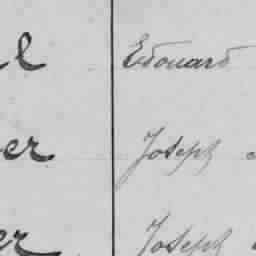 l Edouard
er Joseph
er Joseph